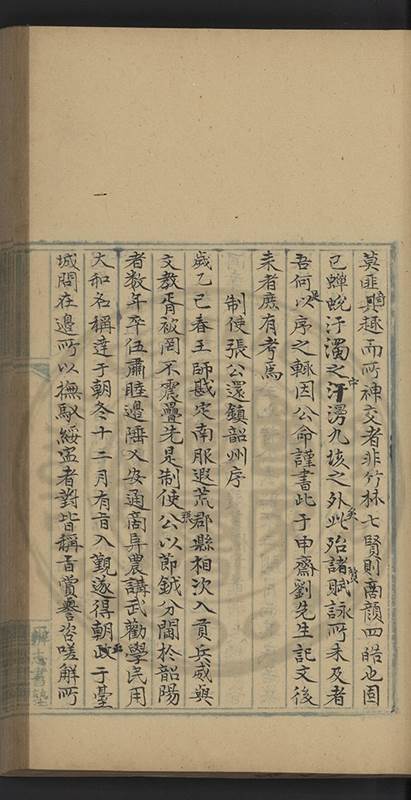 莫匪興趣而所神交者非竹林七賢則商顔四皓也固
已蟬蛻汙濁之中汗漫九垓之外矣此殆諸賢賦詠所未及者
吾何以序之輒因公命謹書此于申齋劉先生記文後
来者庶有考焉
制使張公還鎮韶州序
歲乙巳春王師戡定南服遐荒郡縣相次入貢兵威與
文教胥被罔不震疊先是制使張公以節鉞分閫於韶陽
者数年卒伍肅睦邊陲乂安通商阜農講武勸學民用
大和名稱達于朝冬十二月有旨入覲遂得朝正于臺
城問在邊所以撫馭綏寧者對皆稱旨賞賚咨嗟解所